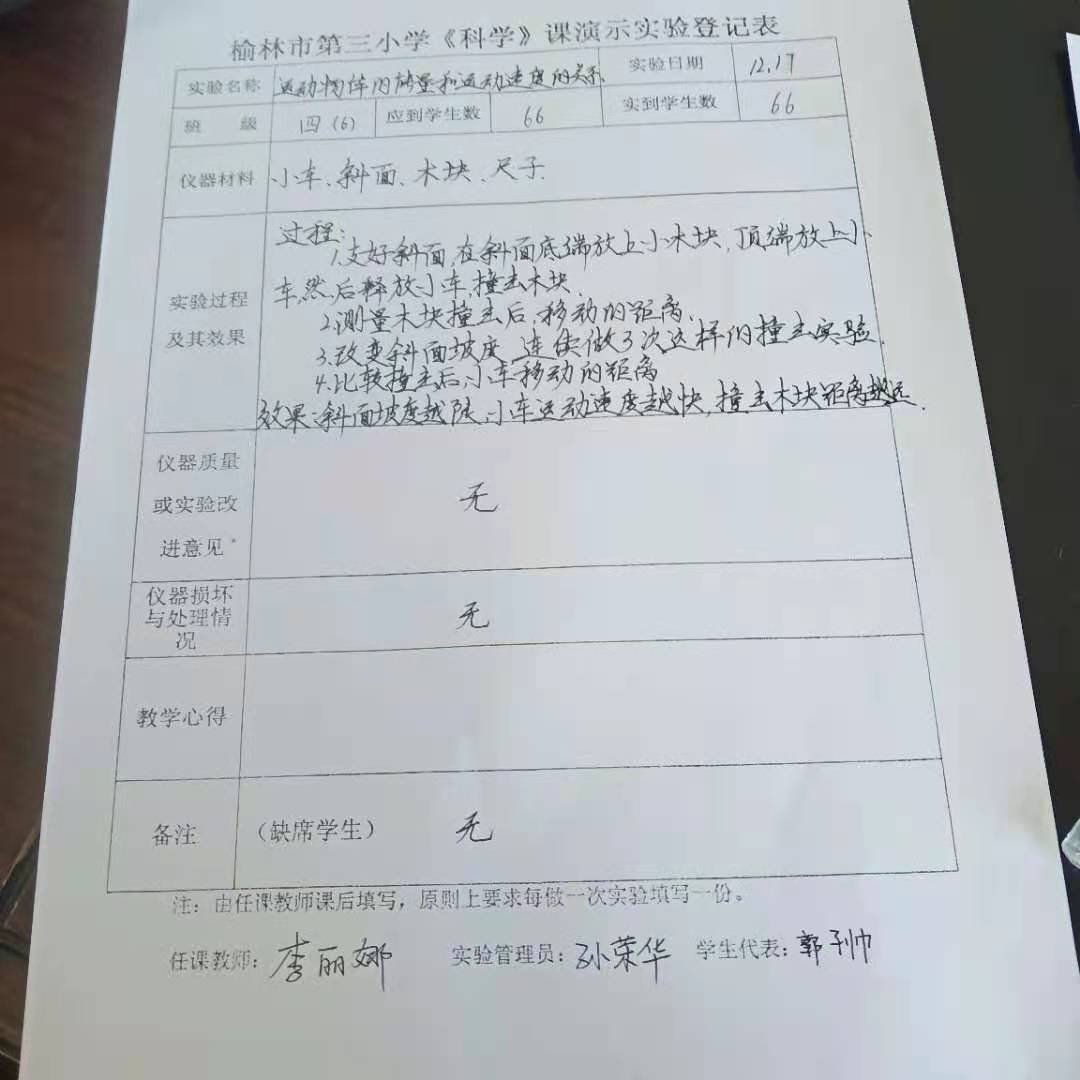 榆林市第三小学《科学》课演示实验登记表
实验名称 运动物体的能量和运动速度的关系 实验日期 12.17
班 级 四(6) 应到学生数 66 实到学生数 66
仪器材料 小车、斜面、木块、尺子
过程:
1.支好斜面,在斜面底端放上小木块,顶端放上小
车,然后释放小车,撞击木块.
实验过程
2.测量木块撞击后,移动的距离.
及其效果
3.改变斜面坡度,连续做3次这样的撞击实验.
4.比较撞击后,小车移动的距离
效果:斜面坡度越陡,小车运动速度越快,撞击木块距离越远.
仪器质量
或实验改 无
进意见
仪器损坏
与处理情 无
况
教学心得
备注 (缺席学生) 无
注:由任课教师课后填写,原则上要求每做一次实验填写一份。
任课教师:李丽娜 实验管理员:孙荣华 学生代表:郭子帅